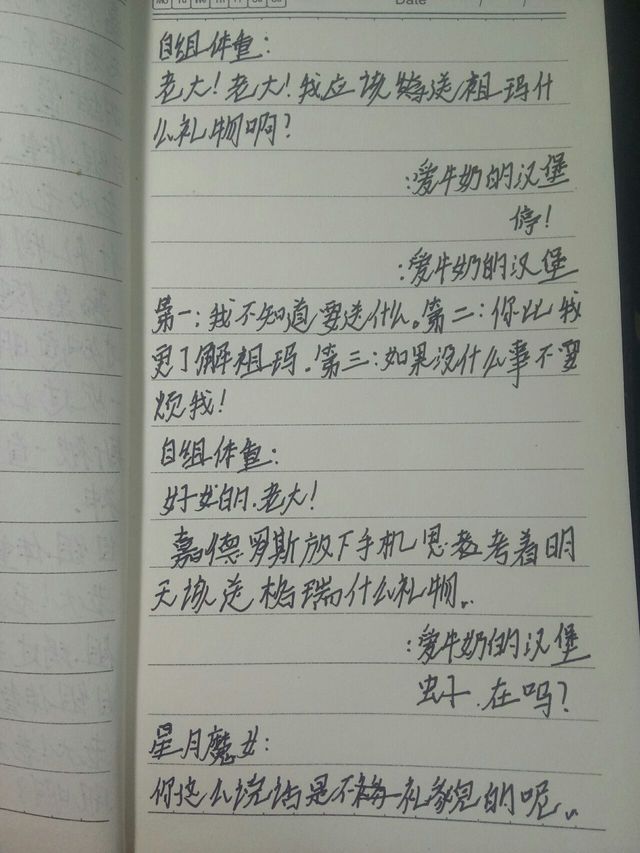 Mo Tu We Th Fr Sa Su
Date / /
自组体重:
老大!老大!我应该送祖玛什
么礼物啊?
:爱牛奶的汉堡
停!
:爱牛奶的汉堡
第一:我不知道要送什么。第二:你比我
更了解祖玛.第三:如果没什么事不要
烦我!
自组体重:
好哒.老大!
嘉德罗斯放下手机思考着明
天该送格瑞什么礼物..
:爱牛奶的汉堡
虫下.在吗?
星月魔女:
你这么说话是不礼貌的呢~